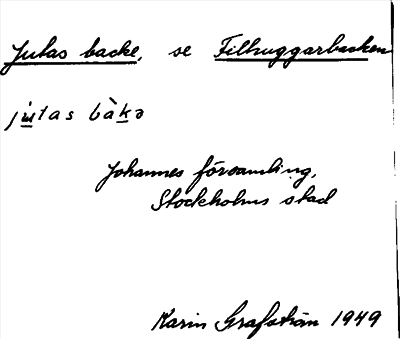 Jutas backe, se Filhuggarbacken
jùtas bàkə
Johannes församling,
Stockholms stad
Karin Grafström 1949